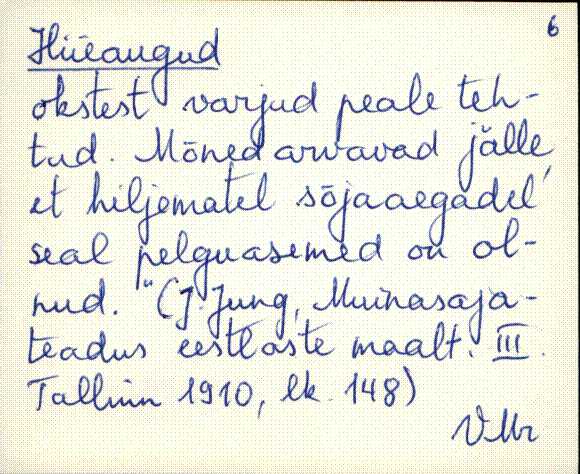 6
Hiieaugud
okstest varjud peale teh-
tud. Mõned arvavad jälle,
et hiljematel sõjaaegadel
seal pelguasemed on ol-
nud." (J. Jung, Muinasaja-
teadus eestlaste maalt. III.
Tallinn 1910, lk. 148)
VMr